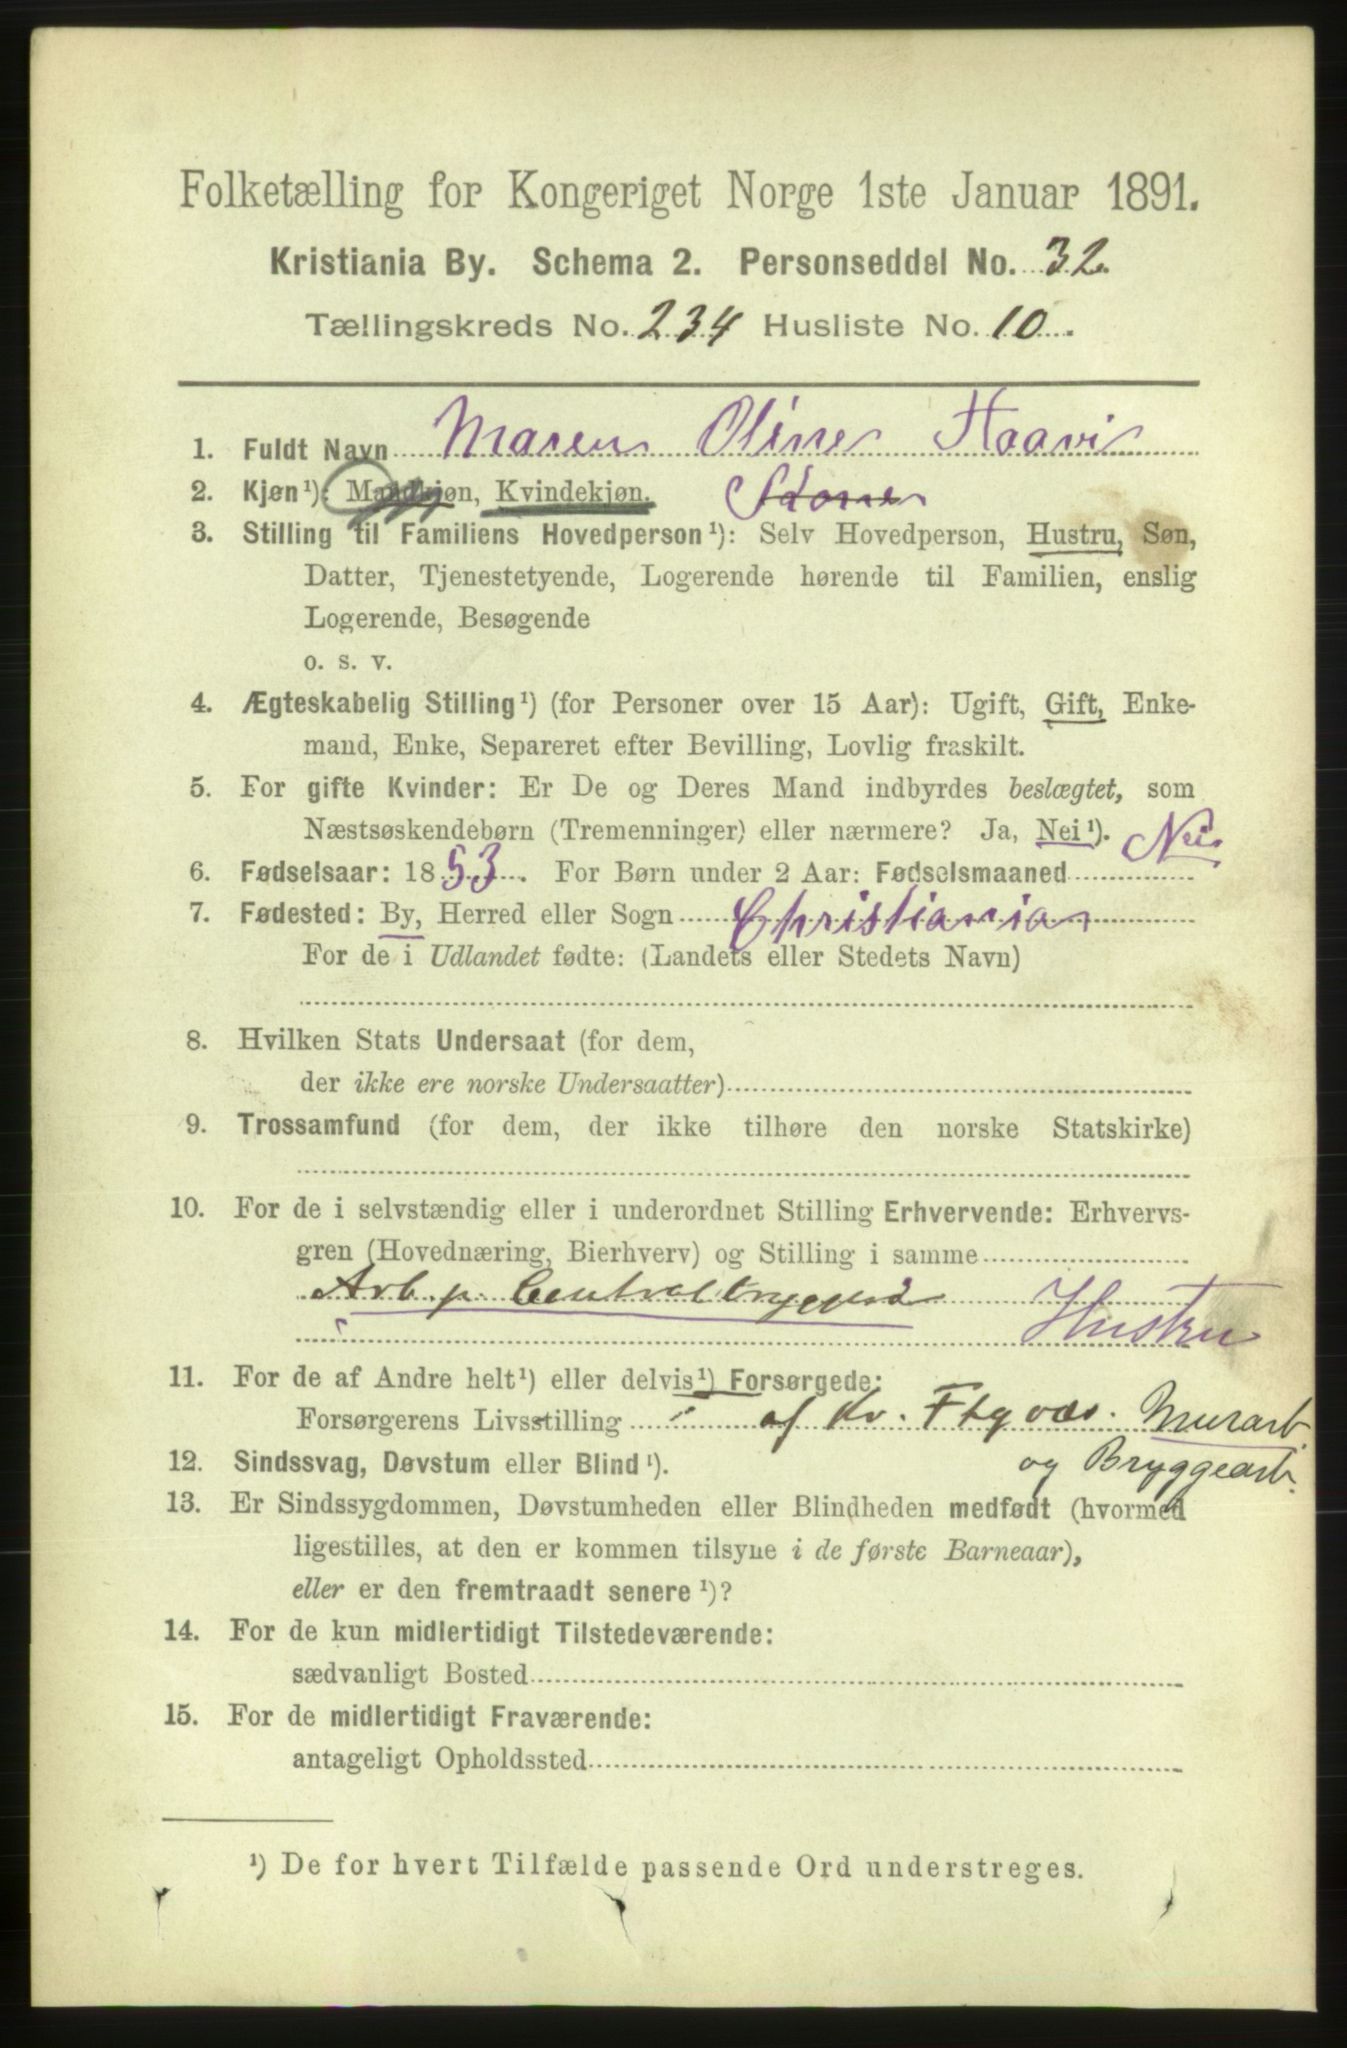 Folketælling for Kongeriget Norge 1ste Januar 1891.
Kristiania By. Schema 2. Personseddel No. 32.
Tællingskreds No. 234 Husliste No. 10.
1. Fuldt Navn Maren Oline Haavi
2. Kjøn¹): Mandkjøn, Kvindekjøn. Kone
3. Stilling til Familiens Hovedperson¹): Selv Hovedperson, Hustru, Søn,
Datter, Tjenestetyende, Logerende hørende til Familien, enslig
Logerende, Besøgende
o. s. v.
4. Ægteskabelig Stilling¹) (for Personer over 15 Aar): Ugift, Gift, Enke-
mand, Enke, Separeret efter Bevilling, Lovlig fraskilt.
5. For gifte Kvinder: Er De og Deres Mand indbyrdes beslægtet, som
Næstsøskendebørn (Tremenninger) eller nærmere? Ja, Nei¹). Nei.
6. Fødselsaar: 1853. For Børn under 2 Aar: Fødselsmaaned
7. Fødested: By, Herred eller Sogn Christiania
For de i Udlandet fødte: (Landets eller Stedets Navn)
8. Hvilken Stats Undersaat (for dem,
der ikke ere norske Undersaatter)
9. Trossamfund (for dem, der ikke tilhøre den norske Statskirke)
10. For de i selvstændig eller i underordnet Stilling Erhvervende: Erhvervs-
gren (Hovednæring, Bierhverv) og Stilling i samme
Arb. p. Centralbryggeri
Hustru
11. For de af Andre helt¹) eller delvis¹) Forsørgede:
Forsørgerens Livsstilling af Kv. Murarb.
og Bryggearb.
12. Sindssvag, Døvstum eller Blind¹).
13. Er Sindssygdommen, Døvstumheden eller Blindheden medfødt (hvormed
ligestilles, at den er kommen tilsyne i de første Barneaar),
eller er den fremtraadt senere¹)?
14. For de kun midlertidigt Tilstedeværende:
sædvanligt Bosted
15. For de midlertidigt Fraværende:
antageligt Opholdssted
¹) De for hvert Tilfælde passende Ord understreges.